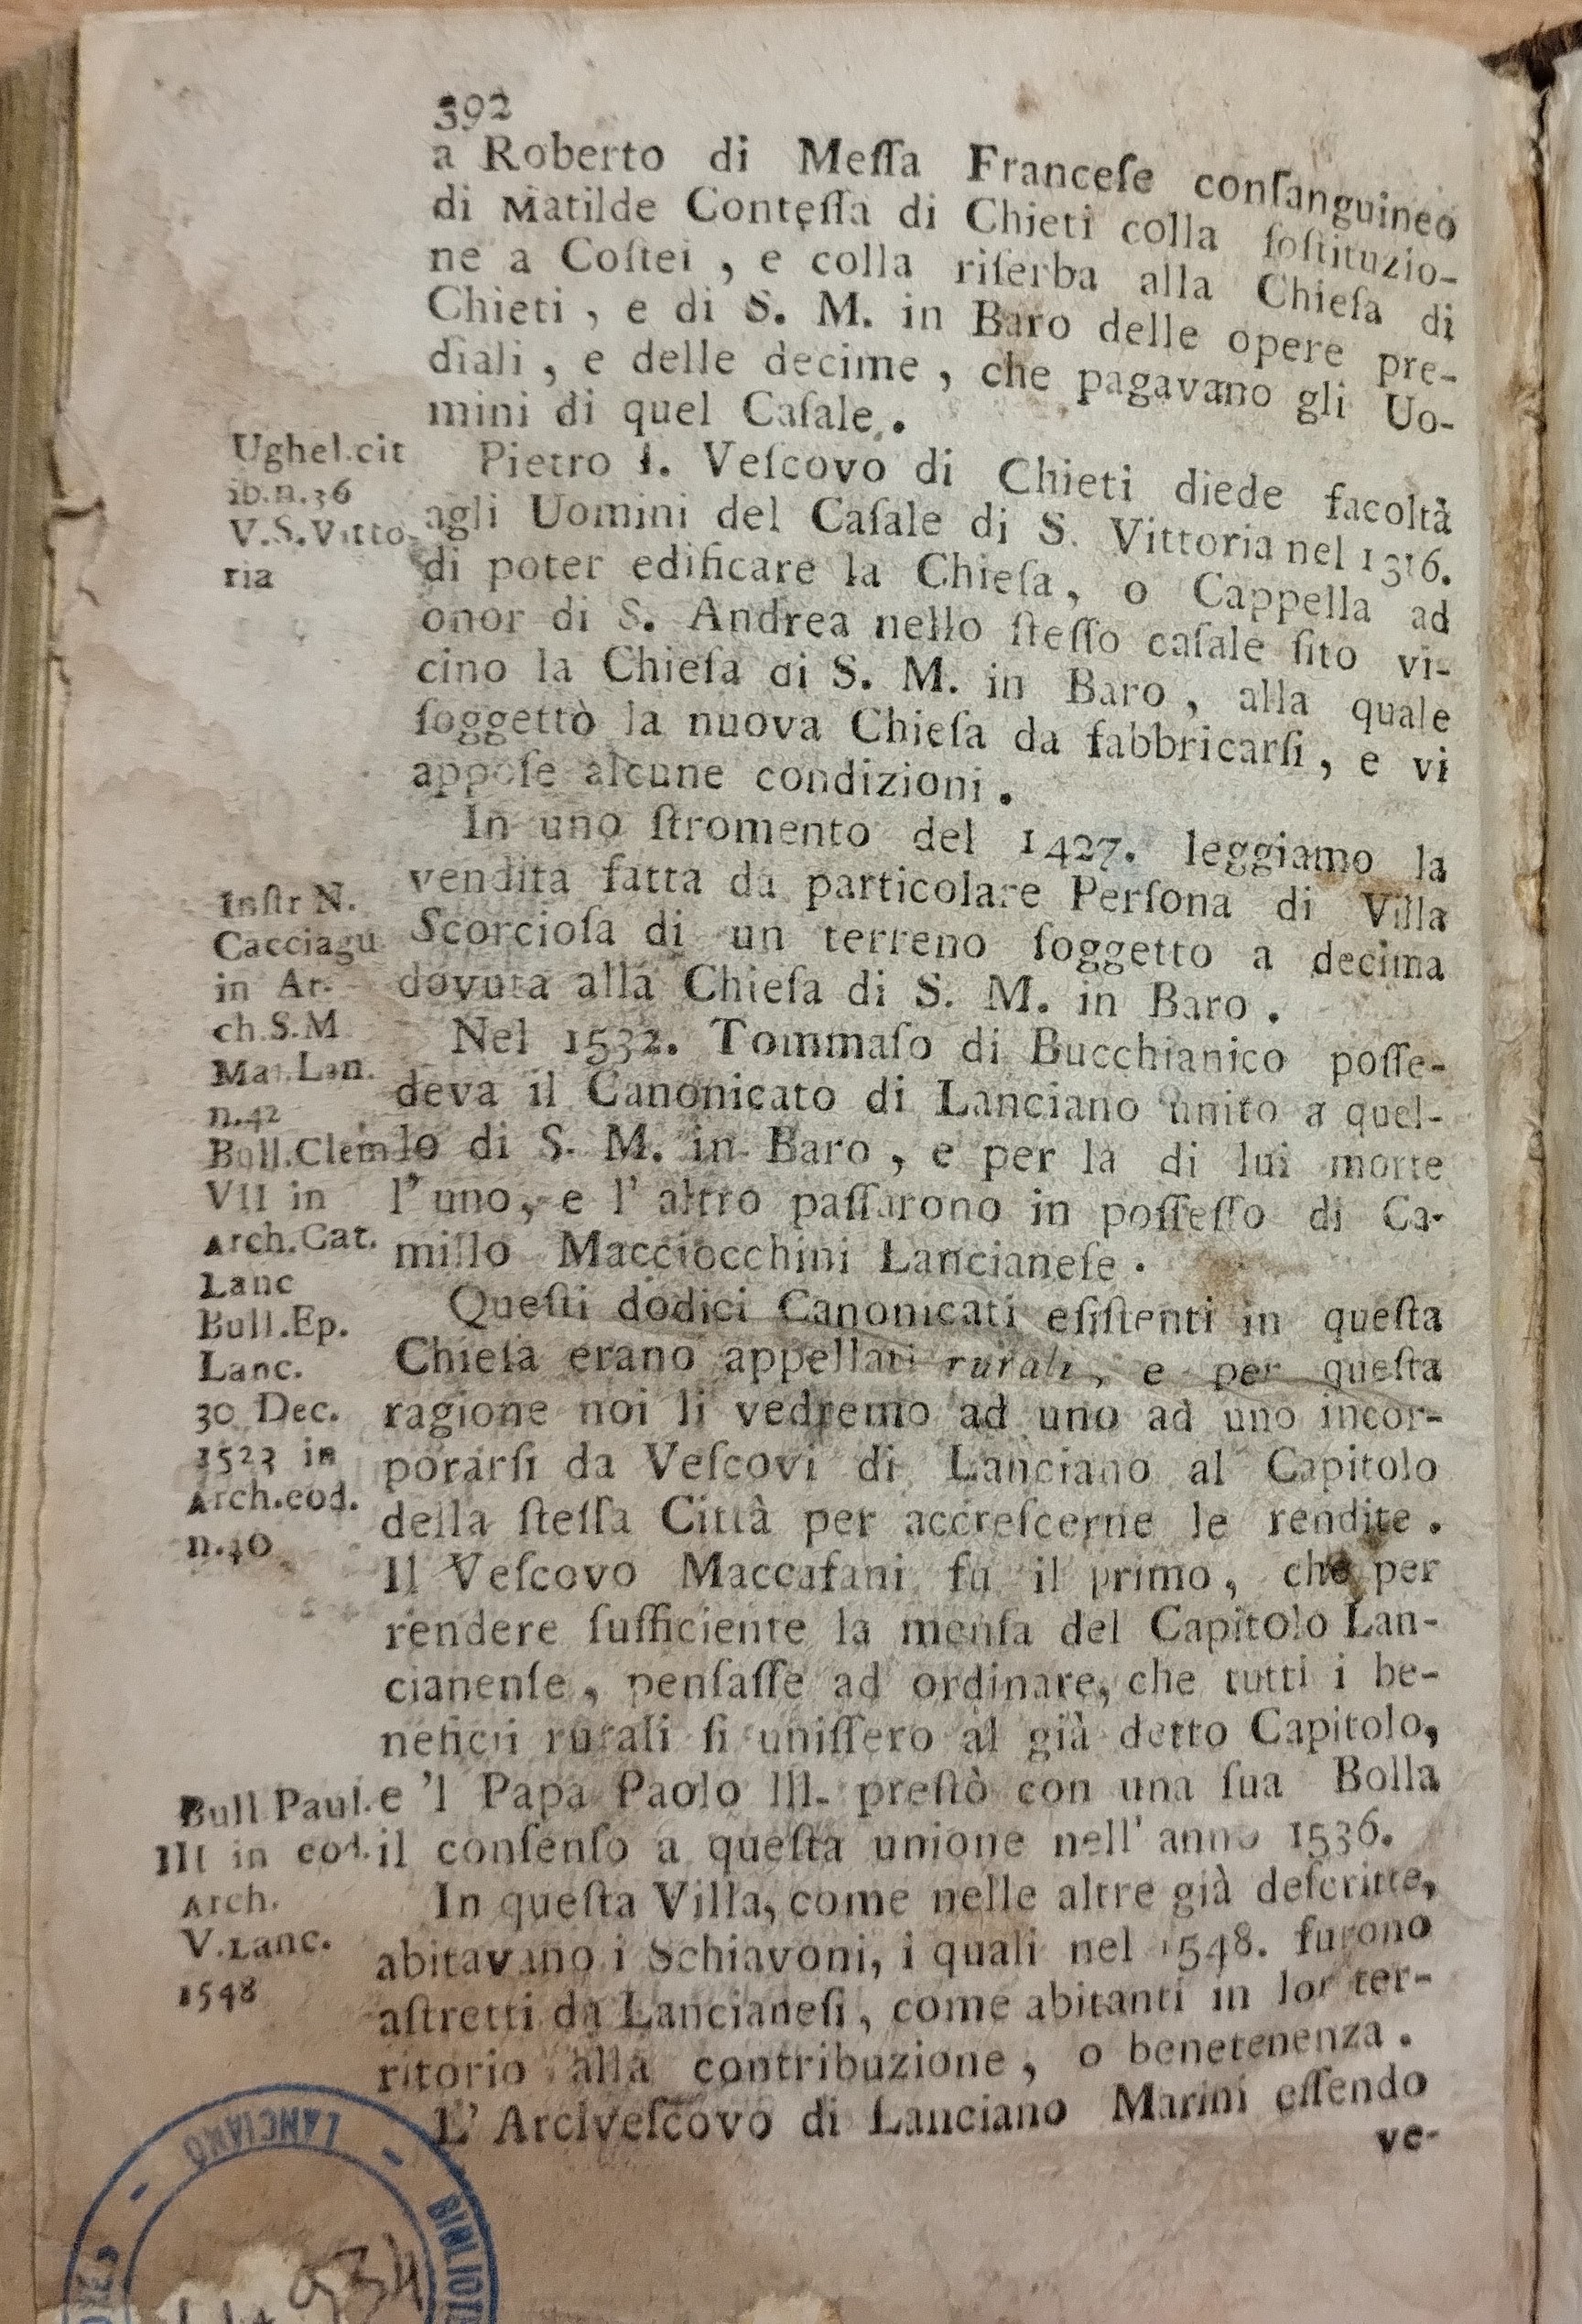 392
a Roberto di Meſſa Franceſe conſanguineo
di Matilde Conteſſa di Chieti colla ſoſtituzio-
ne a Coſtei , e colla riſerba alla Chieſa di
Chieti , e di S. M. in Baro delle opere pre-
diali , e delle decime , che pagavano gli Uo-
mini di quel Caſale .
Ughel.cit
ib.n.36
V.S.Vitto-
ria
Pietro I. Veſcovo di Chieti diede facoltà
agli Uomini del Caſale di S. Vittoria nel 1316.
di poter edificare la Chieſa, o Cappella ad
onor di S. Andrea nello ſteſſo caſale ſito vi-
cino la Chieſa di S. M. in Baro , alla quale
ſoggettò la nuova Chieſa da fabbricarſi , e vi
appoſe alcune condizioni .
In uno ſtromento del 1427. leggiamo la
vendita fatta da particolare Perſona di Villa
Scorcioſa di un terreno ſoggetto a decima
dovuta alla Chieſa di S. M. in Baro .
Inſtr N.
Cacciagu
in Ar-
ch.S.M
Mat.Lan.
n.42
Nel 1532. Tommaſo di Bucchianico poſſe-
deva il Canonicato di Lanciano unito a quel-
lo di S. M. in Baro , e per la di lui morte
l' uno, e l' altro paſſarono in poſſeſſo di Ca-
millo Macciocchini Lancianeſe .
Bull.Clem
VII in
Arch.Cat.
Lanc
Bull.Ep.
Lanc.
30 Dec.
1523 in
Arch.eod.
n.40
Queſti dodici Canonicati eſiſtenti in queſta
Chieſa erano appellati rurali, e per queſta
ragione noi li vedremo ad uno ad uno incor-
porarſi da Veſcovi di Lanciano al Capitolo
della ſteſſa Città per accreſcerne le rendite .
Il Veſcovo Maccafani fu il primo, che per
rendere ſufficiente la menſa del Capitolo Lan-
cianenſe , penſaſſe ad ordinare, che tutti i be-
neficii rurali ſi uniſſero al già detto Capitolo,
e 'l Papa Paolo III. preſtò con una ſua Bolla
il conſenſo a queſta unione nell' anno 1536.
Bull Paul.
III in eod.
Arch.
V.Lanc.
1548
In queſta Villa, come nelle altre già deſcritte,
abitavano i Schiavoni, i quali nel 1548. furono
aſtretti da Lancianeſi , come abitanti in lor ter-
ritorio alla contribuzione , o benetenenza .
L' Arciveſcovo di Lanciano Marini eſſendo
ve-
LANCIANO